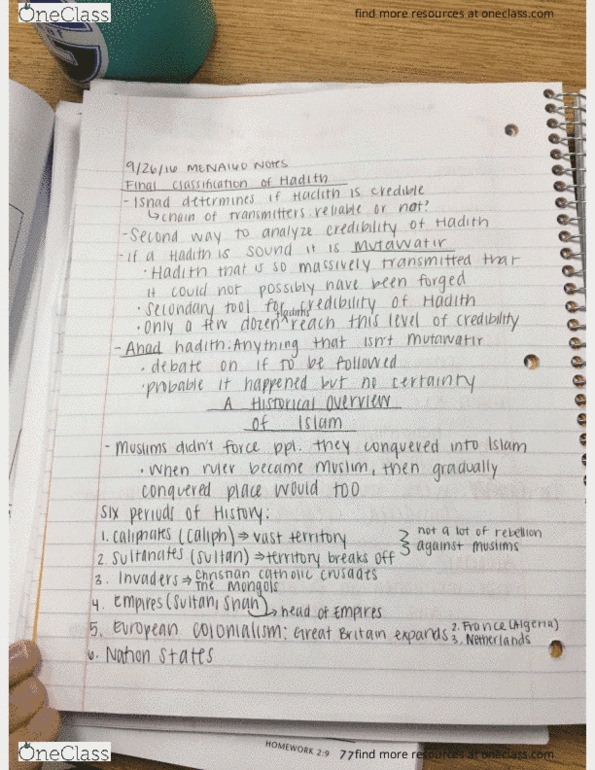 OneClass
find more resources at oneclass.com
9/26/16 MENA160 Notes
Final Classification of Hadith
- Isnad determines if Hadith is credible
↳ chain of transmitters reliable or not?
- Second way to analyze credibility of Hadith
- if a Hadith is sound it is Mutawatir
• Hadith that is so massively transmitted that
it could not possibly have been forged
• Secondary tool for credibility of Hadith
• only a few dozen Hadiths reach this level of credibility
- Ahad hadith: Anything that isn't mutawatir
• debate on if to be followed
• probable it happened but no certainty
A Historical Overview
of Islam
- Muslims didn't force ppl. they conquered into Islam
• When ruler became muslim, then gradually
conquered place would too
Six periods of History:
1. Caliphates (Caliph) ⇒ vast territory
2. Sultanates (Sultan) ⇒ territory breaks off
not a lot of rebellion
against muslims
3. Invaders ⇒ Christian Catholic Crusades
The Mongols
4. Empires (Sultan, Shah) ↳ head of Empires
5. European Colonialism: Great Britain expands 2. France (Algeria)
3. Netherlands
6. Nation States
OneClass
HOMEWORK 2:9 77
find more resources at oneclass.com